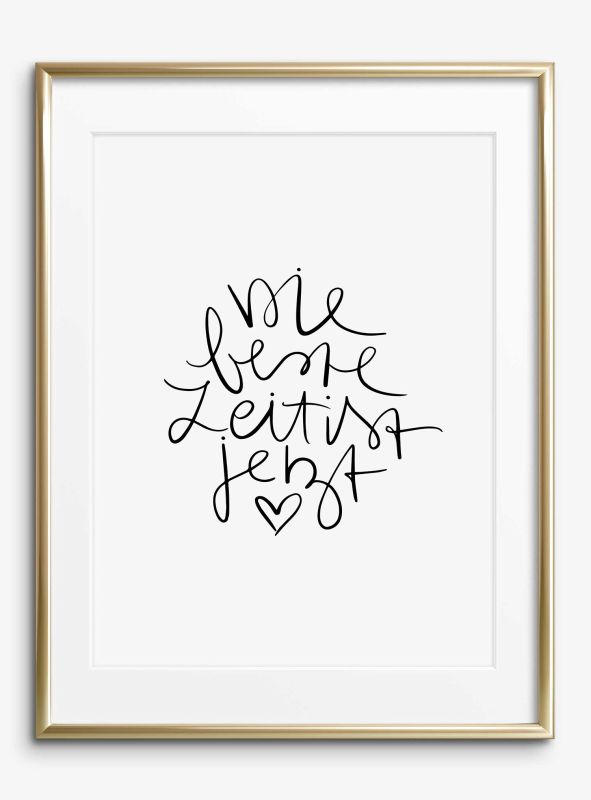 die
beste
Zeit ist
jetzt